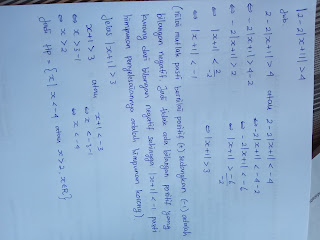 |2 - 2|x+1|| > 4
Jwb
2 - 2|x+1| > 4 atau 2 - 2|x+1| < -4
⇔ -2|x+1| > 4-2 ⇔ -2|x+1| < -4-2
⇔ -2|x+1| > 2 ⇔ -2|x+1| < -6
⇔ |x+1| < 2/-2 ⇔ |x+1| > -6/-2
⇔ |x+1| < -1 ⇔ |x+1| > 3
(Nilai mutlak pasti bernilai positif (+) sedangkan (-1) adalah
bilangan negatif. Jadi tidak ada bilangan positif yang
kurang dari bilangan negatif sehingga |x+1| < -1 pasti
himpunan penyelesaiannya adalah himpunan kosong)
Jelas |x+1| > 3
x+1 > 3 atau x+1 < -3
⇔ x > 3-1 ⇔ x < -3-1
⇔ x > 2 ⇔ x < -4
Jadi HP = {x | x < -4 atau x > 2, x ∈ R}